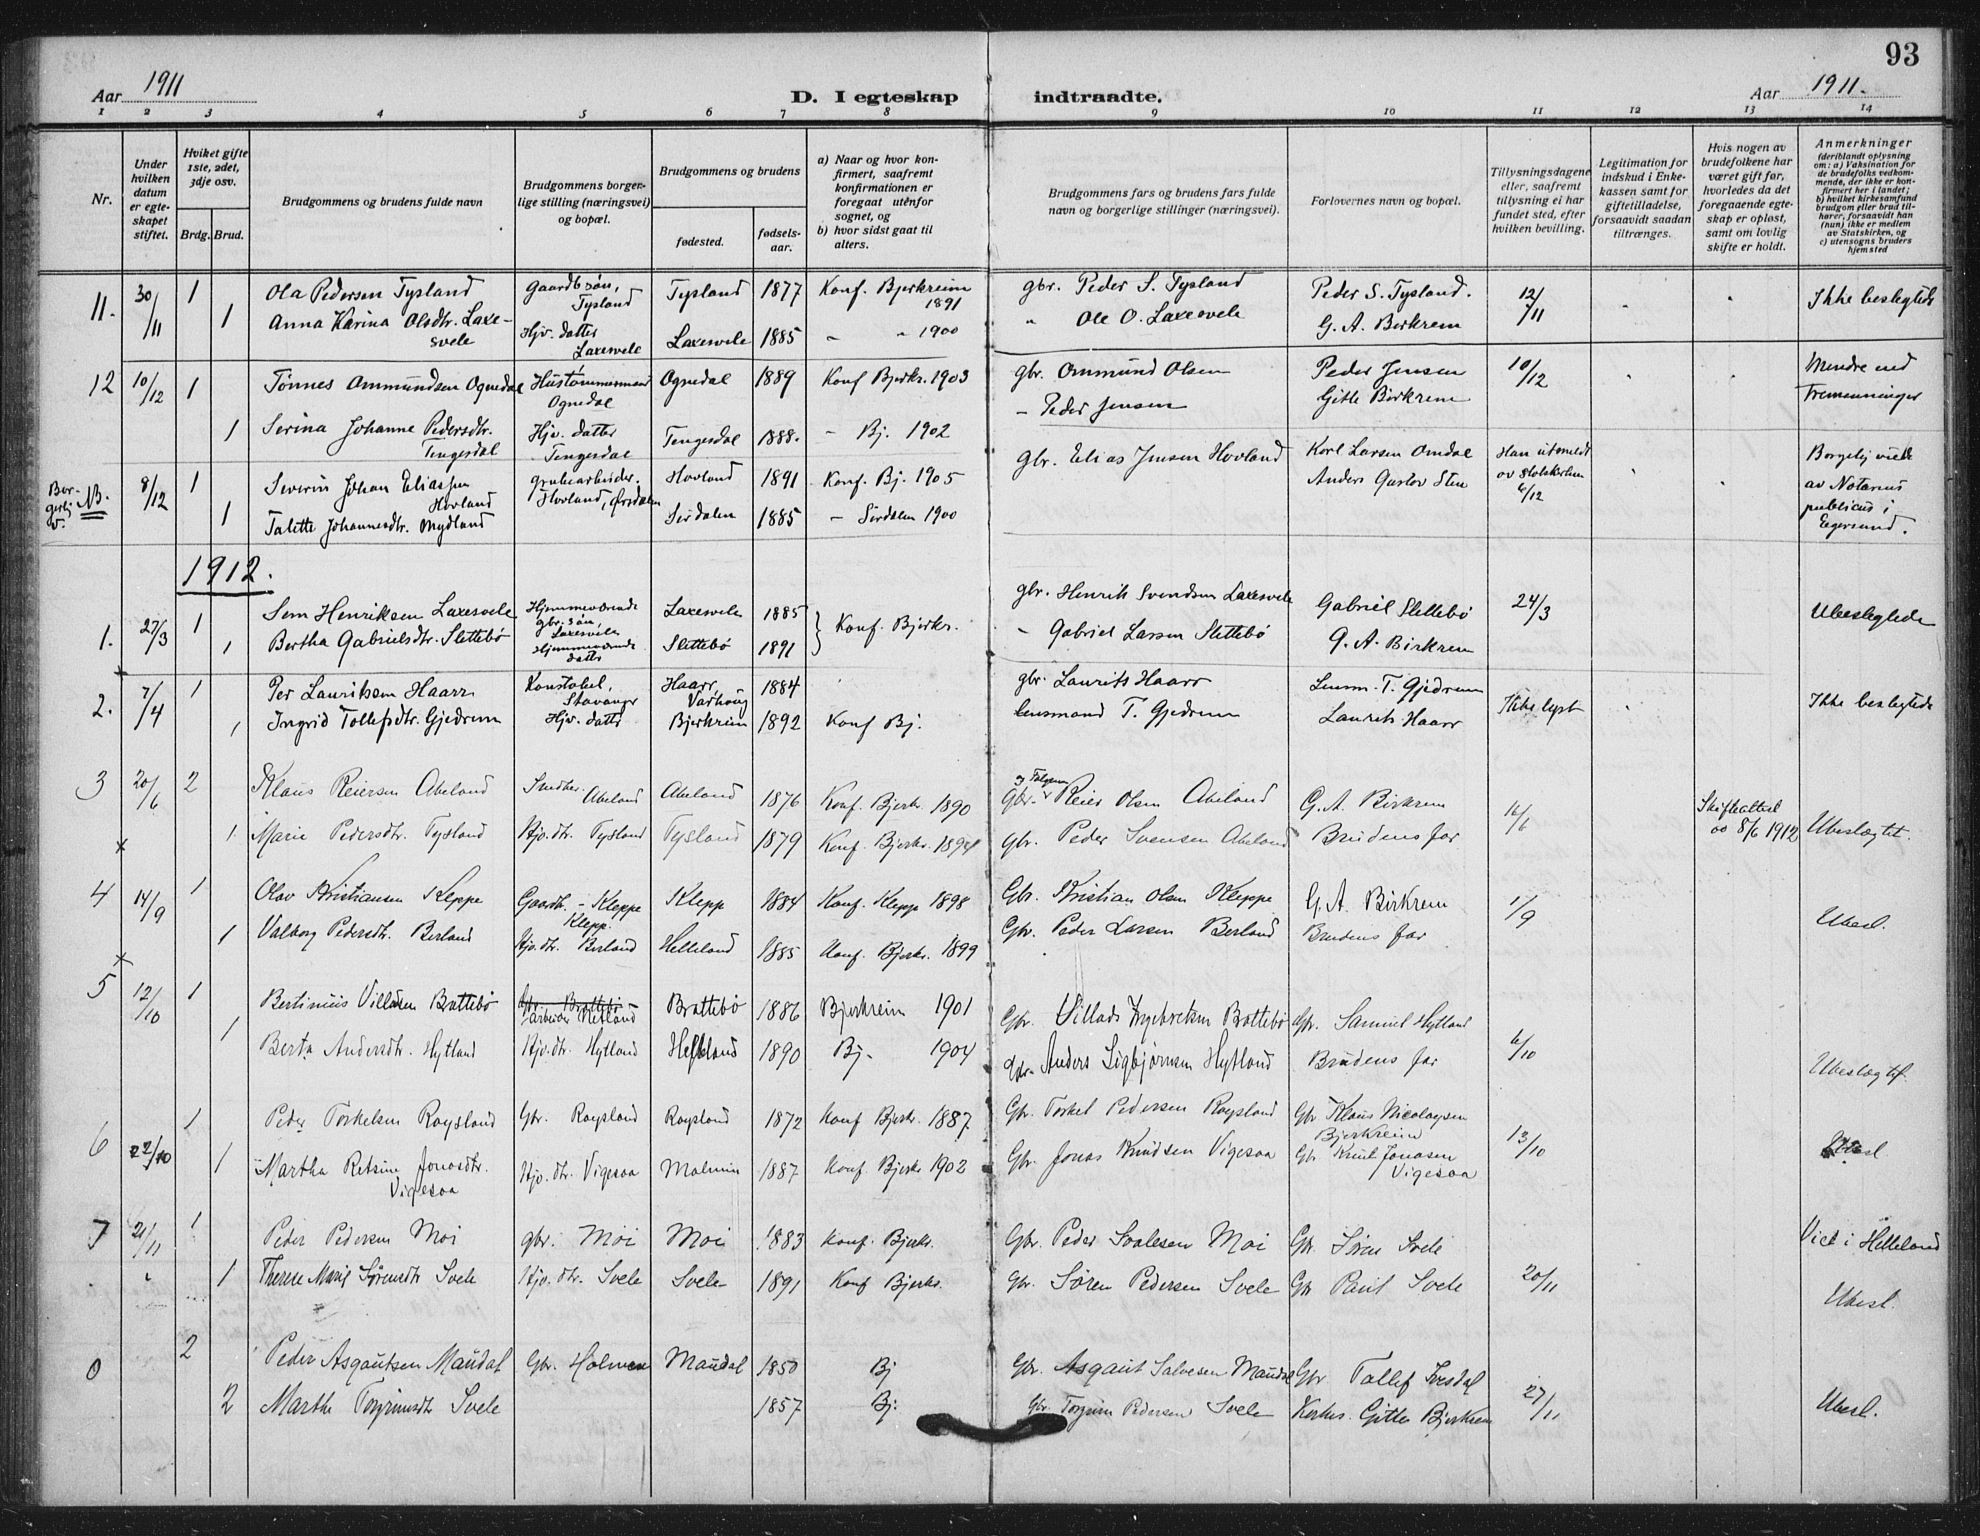 93
Aar 1911
D. I egteskap indtraadte.
Aar 1911.
1 2 3 4 5 6 7 8 9 10 11 12 13 14
Nr.
Under hvilken datum er egteskapet stiftet.
Hviket gifte 1ste, 2det, 3dje osv.
Brdg. Brud.
Brudgommens og brudens fulde navn
Brudgommens borgerlige stilling (næringsvei) og bopæl.
Brudgommens og brudens
fødested.
fødselsaar.
a) Naar og hvor konfirmert, saafremt konfirmationen er foregaat utenfor sognet, og
b) hvor sidst gaat til alters.
Brudgommens fars og brudens fars fulde navn og borgerlige stillinger (næringsvei).
Forlovernes navn og bopæl.
Tillysningsdagene eller, saafremt tillysning ei har fundet sted, efter hvilken bevilling.
Legitimation for indskud i Enkekassen samt for giftetilladelse, forsaavidt saadan tiltrænges.
Hvis nogen av brudefolkene har været gift før, hvorledes da det foregaaende egteskap er opløst, samt om lovlig skifte er holdt.
Anmerkninger (deriblandt oplysning om: a) Vaksination for de brudefolks vedkommende, der ikke er konfirmert her i landet; b) hvilket kirkesamfund brudgom eller brud tilhører, forsaavidt han (hun) ikke er medlem av Statskirken, og c) utensogns bruders hjemsted
11. 30/11 1 Ola Pedersen Tysland Gaardbr.søn, Tysland Tysland 1877 Konf. Bjerkreim 1891 gbr. Peder S. Tysland Peder S. Tysland. 12/11 Ikke beslegtede
1 Anna Karina Olsdtr. Laxesvele Hjv. datter Laxesvele Laxesvele 1885 " " 1900 " Ole O. Laxesvele G. A. Birkrem
12 10/12 1 Tønnes Ommundsen Ognedal Hustømmermand Ognedal Ognedal 1889 Konf Bjerkr. 1903 gbr. Ommund Olsen Peder Jensen 10/12 Mindre end Tremenninger
1 Serina Johanne Pedersdtr. Tengesdal Hjv. datter Tengesdal Tengesdal 1888. - Bj. 1902 - Peder Jensen Gitle Birkrem
Borgerlig v. NB. 8/12 1 Severin Johan Eliassen Hovland grubearbeider. Hovland, Ørsdalen Hovland 1891 Konf. Bj. 1905 gbr. Elias Jensen Hovland Karl Larsen Omdal Han utmeldt av Statskirken 6/12 Borgelig viede av Notarius publicus i Egersund.
1 Talette Johannesdtr. Mydland Sirdalen 1885 - Sirdalen 1900 Anders Gustav Sten
1912.
1. 27/3 1 Sem Henriksen Laxesvele Hjemmeværende gbr. søn, Laxesvele Laxesvele 1885 } Konf. Bjerkr. gbr. Henrik Svendsen Laxesvele Gabriel Slettebø 24/3 Ubeslegtede
1 Bertha Gabrielsdtr. Slettebø Hjemmeværende datter Slettebø 1891 - Gabriel Larsen Slettebø G. A. Birkrem
2. 7/4 1 Per Lauritsen Haarr Konstabel, Stavanger Haarr Varhoug 1884 gbr. Laurits Haarr Lensm. T. Gjedrem Ikke lyst Ikke beslegtede
1 Ingrid Tollefsdtr. Gjedrem Hjv. datter Bjerkreim 1892 Konf Bj. lensmand T. Gjedrem Laurits Haarr
3 20/6 2 Klaus Reiersen Abeland Smedher. Abeland Abeland 1876 Konf. Bjerkr. 1890 Gbr. Reier Olsen Abeland G. A. Birkrem 16/6 Skifteattest av 8/6 1912 Ubeslægtet.
x 1 Marie Pedersdtr. Tysland Hjv. dtr. Tysland Tysland 1879 Konf. Bjerkr. 1894 Gbr. Peder Svensen Abeland Brudens far
4 14/9 1 Olav Kristiansen Kleppe Gaardb. - Kleppe Klepp. Klepp 1884 Konf. Klepp 1898 Gbr. Kristian Olsen Kleppe G. A. Birkrem 1/9 Ubesl.
1 Valborg Pedersdt. Berland Hjv. dtr. Berland Helleland 1885 Konf. Bjerkr. 1899 Gbr. Peder Larsen Berland Brudens far
x
5 12/10 1 Bertinius Villadsen Brattebø Gbr. Brattebø arbeider Netland Brattebø 1886 Bjerkreim 1901 Gbr. Villads Ingebretsen Brattebø Gbr. Samuel Hytland 6/10 Ubeslægtet.
1 Berta Andersdtr. Hytland Hjv. dtr. Hytland Helleland 1890 Bj. 1904 Gbr. Anders Sigbjørnsen Hytland Brudens far
6 22/10 1 Peder Torkelsen Røysland Gbr. Røysland Røysland 1872 Konf Bjerkr. 1887. Gbr. Torkel Pedersen Røysland Gbr Klaus Nicolaysen Bjerkreim 13/10 Ubesl
1 Martha Retsine Jonasdtr. Vigesaa Hjv. dtr. Vigesaa Malmin 1887 Konf Bjerkr 1902 Gbr. Jonas Knudsen Vigesaa Gbr Knut Jonasen Vigesaa
7 21/11 1 Peder Pedersen Moi gbr. Moi Moi 1883 Konf. Bjerkr. Gbr. Peder Svalesen Moi Gbr. Søren Svele 20/11 Viet i Helleland
1 Therese Marie Sørensdtr Svele Hjv. dtr. Svele Svele 1891 Konf Bjerkr. Gbr. Søren Pedersen Svele Gbr Paul Svele Ubesl.
0 2 Peder Asgautsen Maudal Gbr. Holmen Maudal 1850 Bj Gbr. Asgaut Salvesen Maudal Gbr Tollef Ivesdal 27/11 Ubesl.
2 Marthe Torgrimsdtr Svele 1857 Bj. Gbr. Torgrim Pedersen Svele Kirkes. Gitle Bjerkrem